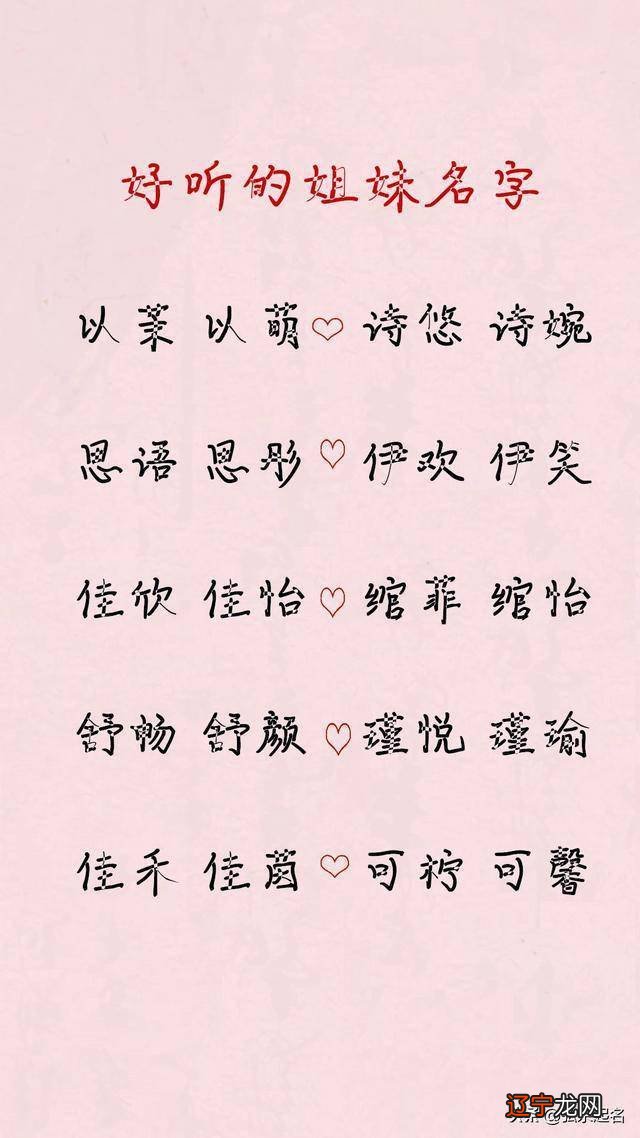 好听的姐妹名字
以茉 以萌 诗悠 诗婉
思语 思彤 伊欢 伊笑
佳欣 佳怡 绾菲 绾怡
舒畅 舒颜 瑾悦 瑾瑜
佳禾 佳茵 可柠 可馨
辽宁龙网